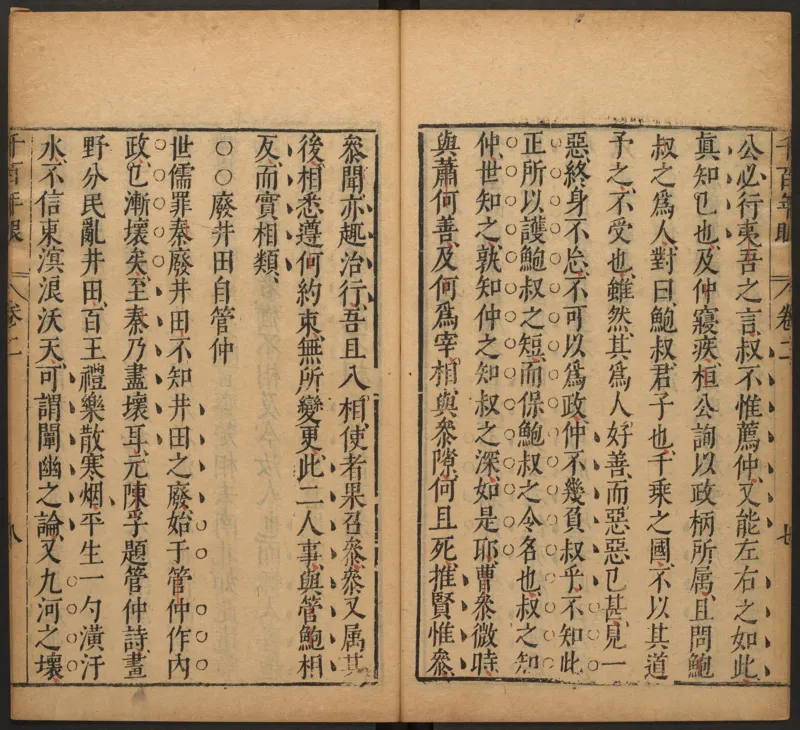 千百年眼 卷二 七
公必行夷吾之言叔不惟薦仲又能左右之如此
真知己也及仲寢疾桓公詢以政柄所属且問鮑
叔之爲人對曰鮑叔君子也千乘之國不以其道
予之不受也雖然其爲人好善而惡惡已甚見一
惡終身不忘不可以爲政仲不幾負叔乎不知此
正所以護鮑叔之短而保鮑叔之令名也叔之知
仲世知之孰知仲之知叔之深如是耶曹參微時
與蕭何善及何爲宰相與參隙何且死推賢惟參
參聞亦趣治行吾且入相使者果召參參又属其
後相悉遵何約束無所變更此二人事與管鮑相
反而實相類
○○廢井田自管仲
世儒罪秦廢井田不知井田之廢始于管仲作内
政已漸壞矣至秦乃盡壞耳元陳孚題管仲詩畫
野分民亂井田百王禮樂散寒烟平生一勺潢汙
水不信東溟浪沃天可謂闡幽之論又九河之壞
千百年眼 卷二 八